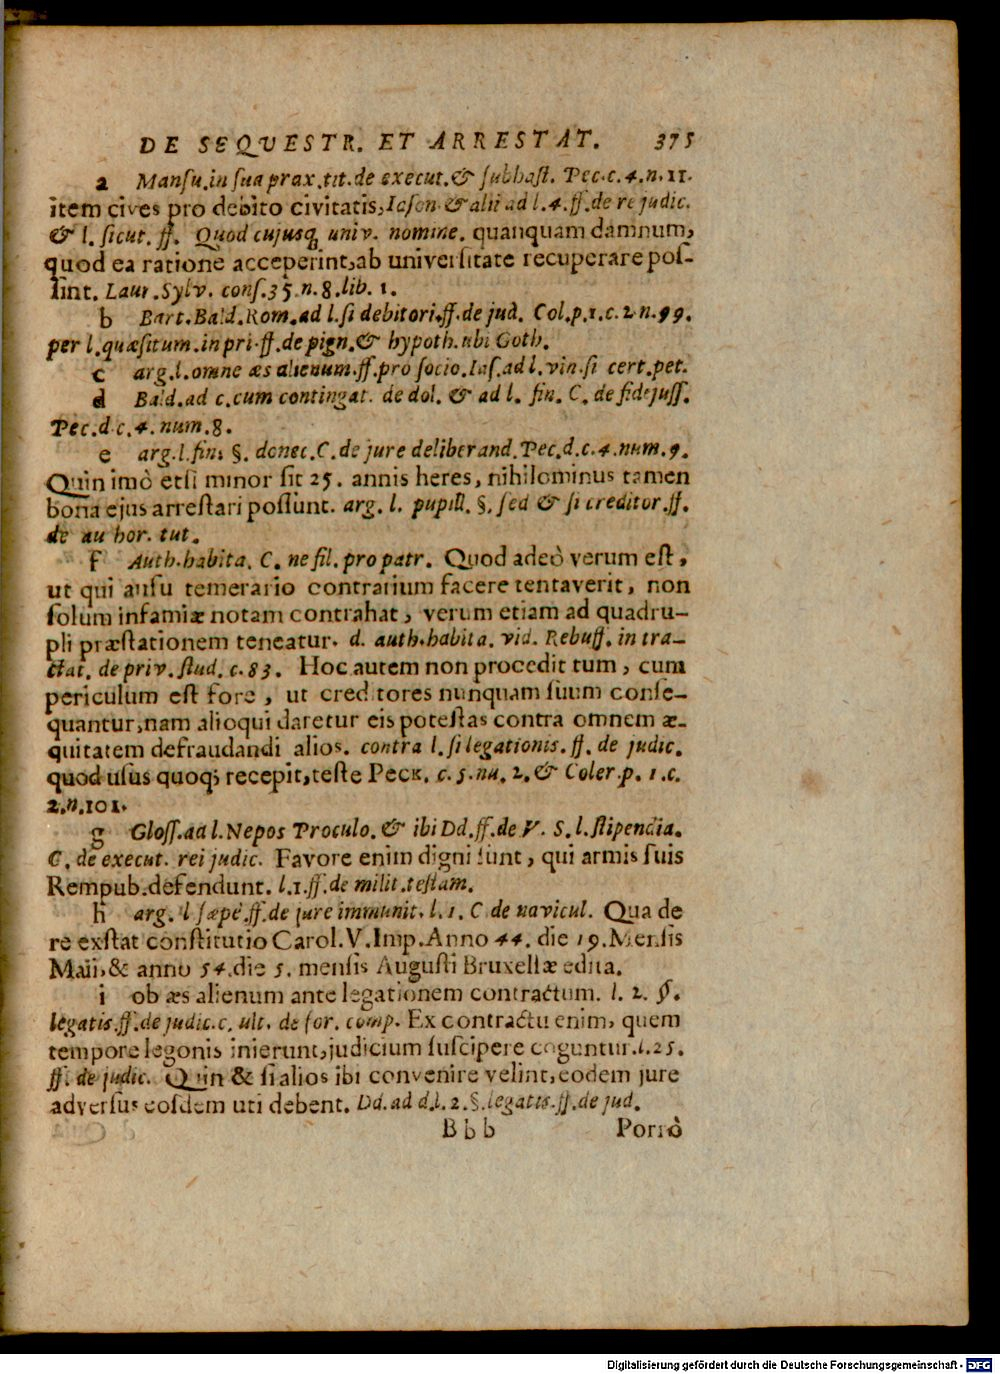 DE SEQVESTR. ET ARRESTAT. 375
a Mansu.in sua prax.tit.de execut.& subhast. Pec.c.4.n.11.
item cives pro debito civitatis, Iason & alii ad l.4.ff.de re judic.
& l. sicut. ff. Quod cujusq; univ. nomine. quanquam damnum,
quod ea ratione acceperint, ab universitate recuperare pos-
sint. Laur. Sylv. cons.35.n.8.lib. 1.
b Bart.Bald.Rom.ad l.si debitori.ff.de jud. Col.p.1.c.2.n.99.
per l.quæsitum.in pri.ff.de pign.& hypoth.ubi Goth.
c arg.l.omne æs alienum.ff.pro socio.Ias.ad l.vin.si cert.pet.
d Bald.ad c.cum contingat. de dol. & ad l. fin. C. de fidejuss.
Pec.d.c.4. num.8.
e arg.l.fin. §. donec.C.de jure deliberand.Pec.d.c.4.num.9.
Quin imò etsi minor sit 25. annis heres, nihilominus tamen
bona ejus arrestari possunt. arg. l. pupill. §. sed & si creditor.ff.
de au hor. tut.
f Auth.habita. C. ne fil. pro patr. Quod adeò verum est,
ut qui ausu temerario contrarium facere tentaverit, non
solum infamiæ notam contrahat, verum etiam ad quadru-
pli præstationem teneatur. d. auth.habita. vid. Rebuff. in tra-
ctat. de priv. stud. c.83. Hoc autem non procedit tum, cum
periculum est fore, ut creditores nunquam suum conse-
quantur, nam alioqui daretur eis potestas contra omnem æ-
quitatem defraudandi alios. contra l. si legationis. ff. de judic.
quod usus quoq; recepit, teste Peck. c. 5. nu. 2. & Coler.p. 1.c.
2.n.101.
g Gloss.ad l.Nepos Proculo. & ibi Dd.ff.de V. S. l.stipendia.
C. de execut. rei judic. Favore enim digni sunt, qui armis suis
Rempub.defendunt. l.1.ff.de milit.testam.
h arg. l sæpè.ff.de jure immunit. l. 1. C de navicul. Qua de
re exstat constitutio Carol.V.Imp.Anno 44. die 19.Mensis
Maii, & anno 54.die 5. mensis Augusti Bruxellæ edita.
i ob æs alienum ante legationem contractum. l. 2. §.
legatis.ff.de judic.c. ult. de for. comp. Ex contractu enim, quem
tempore legonis inierunt, judicium suscipere coguntur.l.25.
ff. de judic. Quin & si alios ibi convenire velint, eodem jure
adversus eosdem uti debent. Dd. ad d.l. 2.§.legatis.ff.de jud.
Bbb Porrò
Digitalisierung gefördert durch die Deutsche Forschungsgemeinschaft - DFG